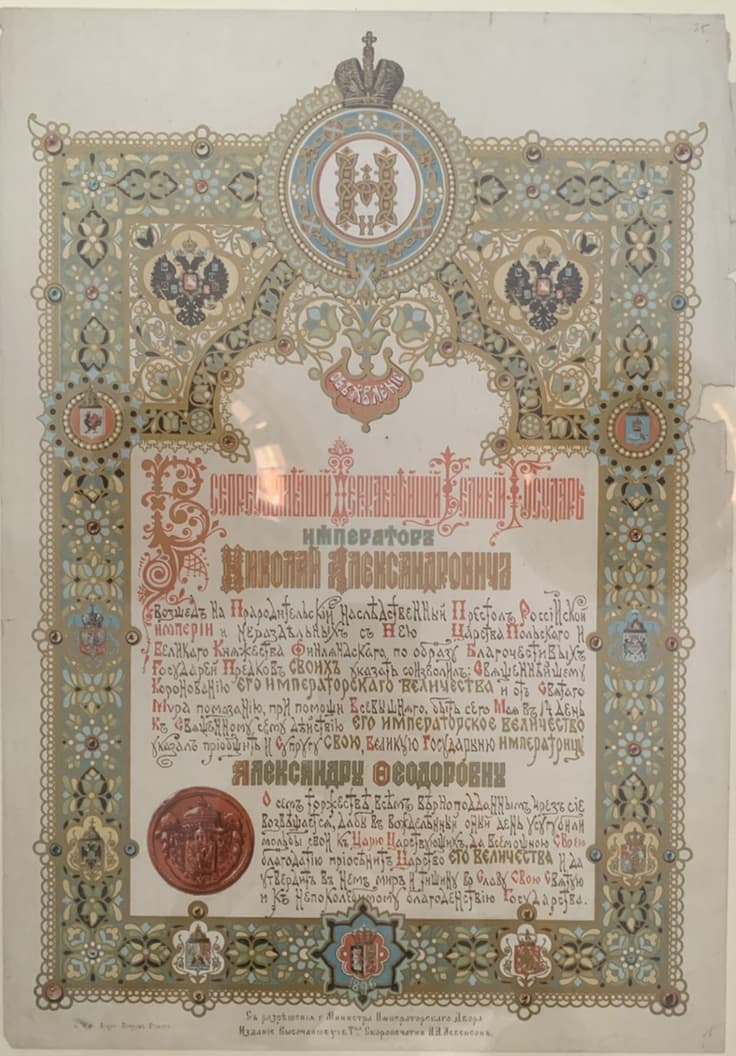 Н
II
ОБЪЯВЛЕНІЕ
Всепресвѣтлѣйшій Державнѣйшій Великій Государь
ИМПЕРАТОРЪ
Николай Александровичъ
возшедъ на Прародительскій наслѣдственный Престолъ Россійской
Имперіи и нераздѣльныхъ съ Нею Царства Польскаго и
Великаго Княжества Финляндскаго, по образу Благочестивыхъ
Государей Предковъ СВОИХЪ указать соизволилъ: Священнѣйшему
Коронованію ЕГО ИМПЕРАТОРСКАГО ВЕЛИЧЕСТВА и отъ Святаго
Мѵра помазанію, при помощи Всевышняго, быть сего Мая въ 14 день
Къ Священному сему дѣйствію ЕГО ИМПЕРАТОРСКОЕ ВЕЛИЧЕСТВО
указалъ пріобщить и Супругу СВОЮ, Великую Государыню ИМПЕРАТРИЦУ
Александру Ѳеодоровну
О семъ торжествѣ всѣмъ вѣрноподданнымъ чрезъ сіе
возвѣщается, дабы въ вожделѣнный оный день усугубили
мольбы свои къ Царю Царствующихъ, да всемощною СВОЕЮ
благодатію пріосѣнитъ Царство ЕГО ВЕЛИЧЕСТВА и да
утвердитъ въ немъ миръ и тишину во Славу СВОЮ Святую
и къ непоколебимому благоденствію Государства.
1896
Съ разрѣшенія г. Министра Императорскаго Двора
Изданіе Высочайше утв. Т-ва Скоропечатни А.А. Левенсонъ.